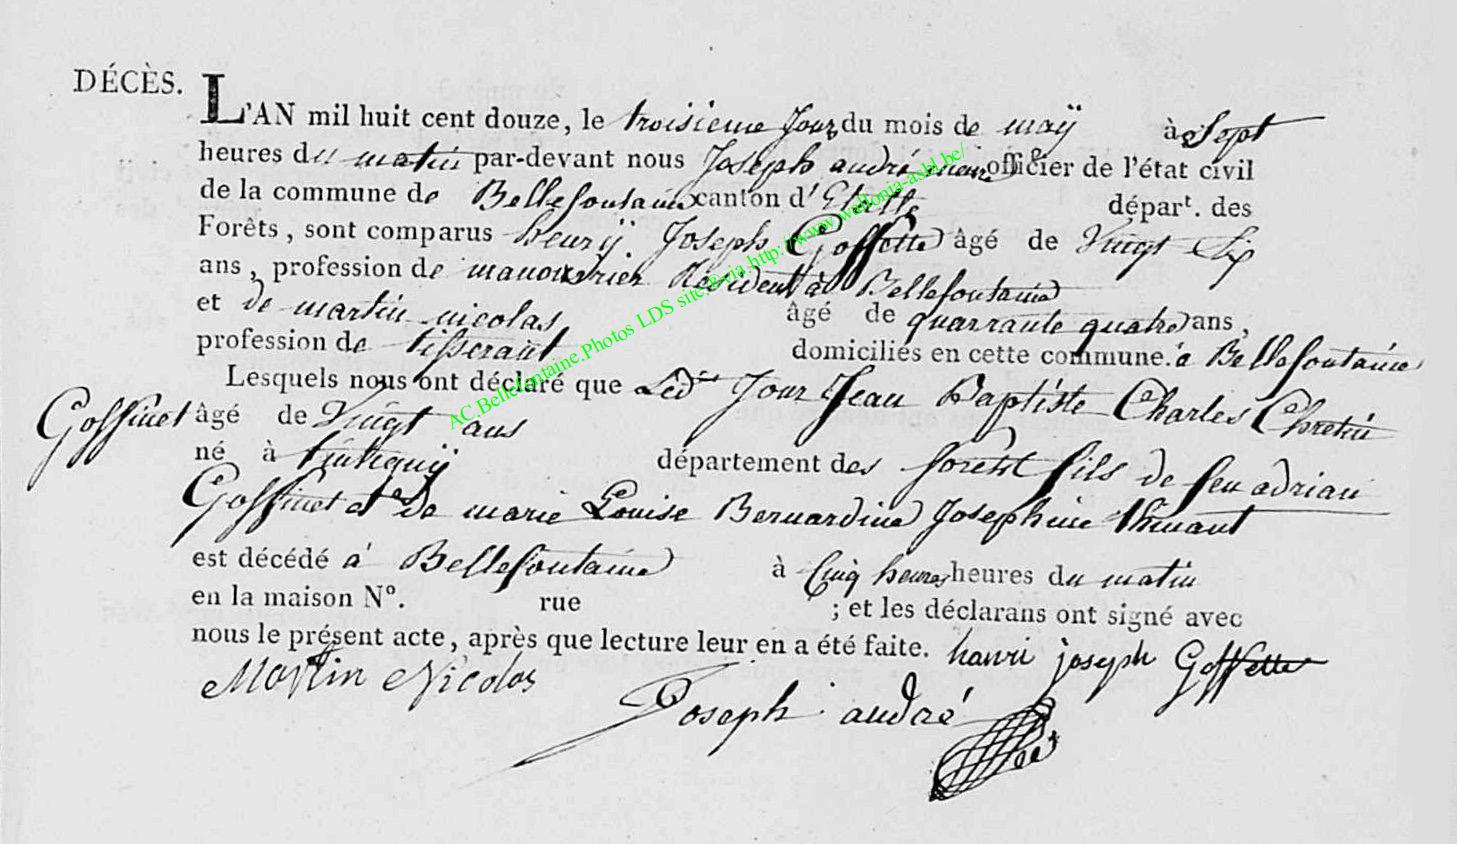 DÉCÈS.
L'AN mil huit cent douze, le troisieme Jour du mois de maÿ à Sept
heures du matin par-devant nous Joseph andré officier de l'état civil
de la commune de Bellefontaine canton d'Etalle dépar^t. des
Forêts, sont comparus henrÿ Joseph Goffette âgé de Vingt Six
ans, profession de manouvrier Résident à Bellefontaine
et de martin nicolas âgé de quarrante quatre ans,
profession de tisserant domiciliés en cette commune. à Bellefontaine
Lesquels nous ont déclaré que Led^it Jour Jean Baptiste Charles Chretien
Goffinet âgé de Vingt ans
né à tintignÿ département des forêst fils de feu adrian
Goffinet et de marie Louise Bernardine Josephine thinant
est décédé à Bellefontaine à Cinq heures heures du matin
en la maison N°. rue ; et les déclarans ont signé avec
nous le présent acte, après que lecture leur en a été faite. hanri joseph Goffette
Martin Nicolas
Joseph andré
AC.Bellefontaine.Photos LDS site @via.http://www.wallonia-asbl.be/